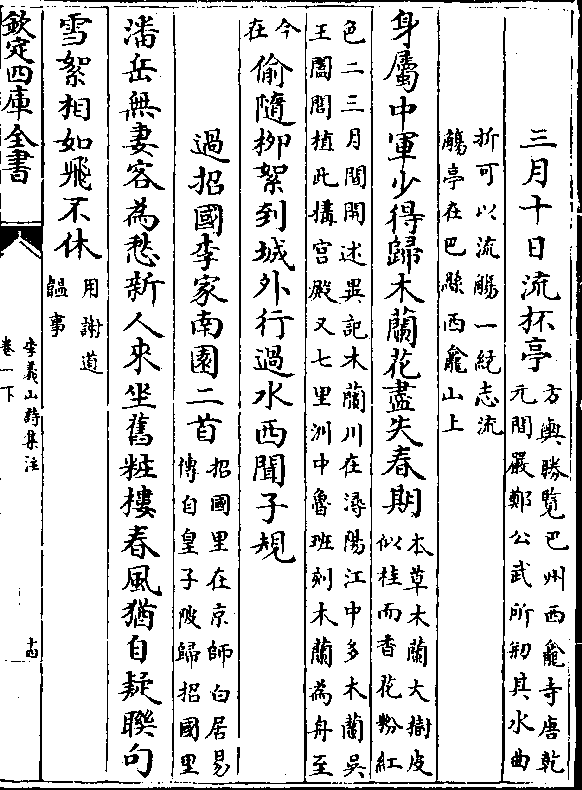 三月十日流杯亭
方輿勝覽巴州西龕寺唐乾
元間嚴鄭公武所刱其水曲
折可以流觴一統志流
觴亭在巴縣西龕山上
身屬中軍少得歸木蘭花盡失春期
本草木蘭大樹皮
似桂而香花粉紅
色二三月間開述異記木蘭川在潯陽江中多木蘭吳
王闔閭植此搆宮殿又七里洲中魯班刻木蘭為舟至
今
在
偷隨柳絮到城外行過水西聞子規
過招國李家南園二首
招國里在京師白居易
傳自皇子陂歸招國里
潘岳無妻客為愁新人來坐舊粧樓春風猶自疑聯句
雪絮相如飛不休
用謝道
韞事
欽定四庫全書
李義山詩集注
卷一下
十四